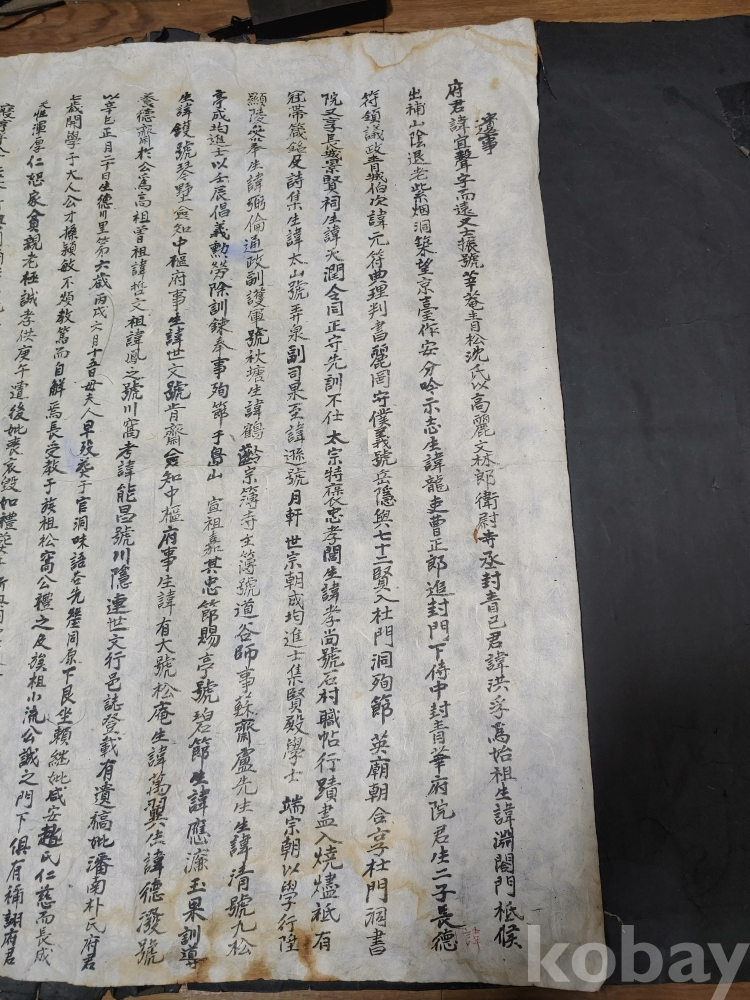 家事
府君諱宜聲字而遠又士振號華菴青松沈氏以高麗文林郎衛尉寺丞封青已君諱洪孚爲始祖生諱淵閤門祗候
出補山陰退老紫烟洞築望京臺作安分吟示志生諱龍吏曹正郎追封門下侍中封青華府院君生二子長德
諱
符領議政青城伯次諱元符典理判書麗罔守僕義號岳隱與七十二賢入杜門洞殉節 英廟朝合享杜門祠書
院又享長城景賢祠生諱天潤令同正守先訓不仕 太宗特褒忠孝閭生諱孝尚號石村職帖行蹟盡入燒燼祗有
冠帶箴銘及詩集生諱太山號弄泉副司果至諱遜號月軒 世宗朝成均進士集賢殿學士 端宗朝以學行陞
顯陵參奉生諱弼倫通政副護軍號秋塘生諱鶴齡宗簿寺主簿號道谷師事蘇齋盧先生生諱清號九松
亭成均進士以壬辰倡義勳勞除訓鍊奉事殉節于島山 宣祖嘉其忠節賜亭號碧節生諱應濂玉果訓導
生諱鑊號琴野僉知中樞府事生諱世文號肯齋僉知中樞府事生諱有大號松庵生諱萬翼生諱德潑號
養德齋於公爲高祖曾祖諱哲文祖諱鳳之號川窩考諱能昌號川隱連世文行邑誌登載有遺稿妣潘南朴氏府君
以辛巳正月二十日生德川里第六歲丙戌六月十五日母夫人早歿葬于官洞味語谷先塋同原下艮坐賴繼妣咸安趙氏仁慈而長成
七歲開學于大人公才操穎敏不煩教篤而自解焉長受教于族祖松窩公禮之及族祖小流公誠之門下俱有稱詡府君
天性渾厚仁恕家貧親老極誠孝供庚午遭後妣喪哀毀如禮